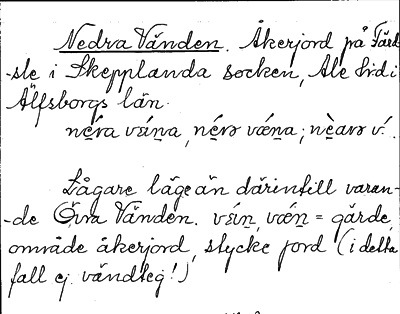 Nedra Vänden. Åkerjord på Färd-
-sle i Skepplanda socken, Ale hd i
Älfsborgs län.
nẹ́ra vɛ́ıṇa, nẹ́rɘ vǽṇa; nẹ̀arɘ v́.
Lågare läge än därintill varan-
-de Övra Vänden. vɛ́ıṇ, vǽṇ = gärde,
område åkerjord, stycke jord (i detta
fall ej vändteg!)